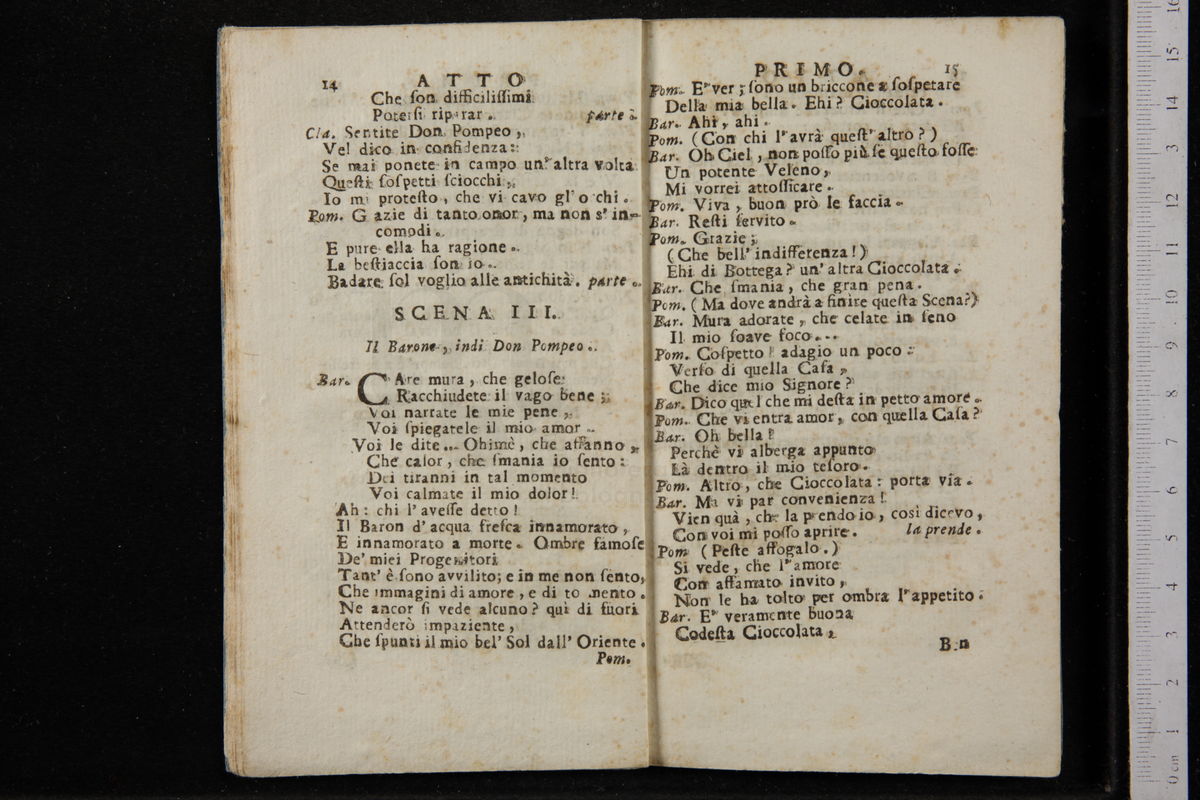 14 ATTO
Che ſon difficiliſſimi
Poterſi riparar. parte.
Cla. Sentite Don Pompeo,
Vel dico in confidenza:
Se mai ponete in campo un' altra volta
Queſti ſoſpetti ſciocchi,
Io mi proteſto, che vi cavo gl' o chi.
Pom. G azie di tanto onor, ma non s' in-
comodi.
E pure ella ha ragione.
La beſtiaccia ſon io.
Badare ſol voglio alle antichità. parte.
SCENA III.
Il Barone, indi Don Pompeo.
Bar. CAre mura, che geloſe
Racchiudete il vago bene;
Voi narrate le mie pene,
Voi ſpiegatele il mio amor.
Voi le dite... Ohimè, che affanno,
Che calor, che ſmania io ſento:
Dei tiranni in tal momento
Voi calmate il mio dolor!
Ah: chi l' aveſſe detto!
Il Baron d' acqua freſca innamorato,
E innamorato a morte. Ombre famoſe
De' miei Progenitori
Tant' è ſono avvilito; e in me non ſento,
Che immagini di amore, e di to mento.
Ne ancor ſi vede alcuno? qui di fuori
Attenderò impaziente,
Che ſpunti il mio bel' Sol dall' Oriente.
Pom.
PRIMO. 15
Pom. E' ver; ſono un briccone a ſoſpetare
Della mia bella. Ehi? Cioccolata.
Bar. Ahi, ahi.
Pom. (Con chi l' avrà queſt' altro?)
Bar. Oh Ciel, non poſſo più ſe queſto foſſe
Un potente Veleno,
Mi vorrei attoſſicare.
Pom. Viva, buon prò le faccia.
Bar. Reſti ſervito.
Pom. Grazie;
(Che bell' indifferenza!)
Ehi di Bottega? un' altra Cioccolata.
Bar. Che ſmania, che gran pena.
Pom. (Ma dove andrà a finire queſta Scena?)
Bar. Mura adorate, che celate in ſeno
Il mio ſoave foco...
Pom. Coſpetto! adagio un poco:
Verſo di quella Caſa,
Che dice mio Signore?
Bar. Dico quel che mi deſta in petto amore.
Pom. Che vi entra amor, con quella Caſa?
Bar. Oh bella!
Perchè vi alberga appunto
Là dentro il mio teſoro.
Pom. Altro, che Cioccolata: porta via.
Bar. Ma vi par convenienza!
Vien quà, che la prendo io, così dicevo,
Con voi mi poſſo aprire. la prende.
Pom (Peſte affogalo.)
Si vede, che l' amore
Con affamato invito,
Non le ha tolto per ombra l' appetito.
Bar. E' veramente buona
Codeſta Cioccolata,
B.n